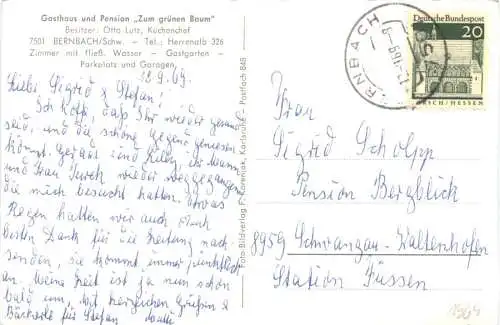 Gasthaus und Pension „Zum grünen Baum"
Besitzer: Otto Lutz, Küchenchef
7501 BERNBACH/Schw. - Tel.: Herrenalb 326
Zimmer mit fließ. Wasser - Gastgarten -
Parkplatz und Garagen
12.9.69.
Liebe Sigrid & Stefan!
Ich hoffe, daß Ihr wieder gesund
seid, und die schöne Gegend geniesen
könnt. Gerade sind
und Frau wieder weggegangen
die mich besucht hatten. Etwas
Regen hatten wir auch
besten Dank für die Zeitung nach-
senden, sie kommt immer pünktlich
an. Meine Zeit ist ja nun schon
bald um, mit herzlichen Grüßen &
für Stefan
Foto-Bildverlag Karlsruhe - Postfach 848
RNBACH
Deutsche Bundespost
20
LORSCH/HESSEN
Frau
Sigrid Scholpp
Pension Bergblick
8959 Schwangau-Waltenhofen
Station Füssen